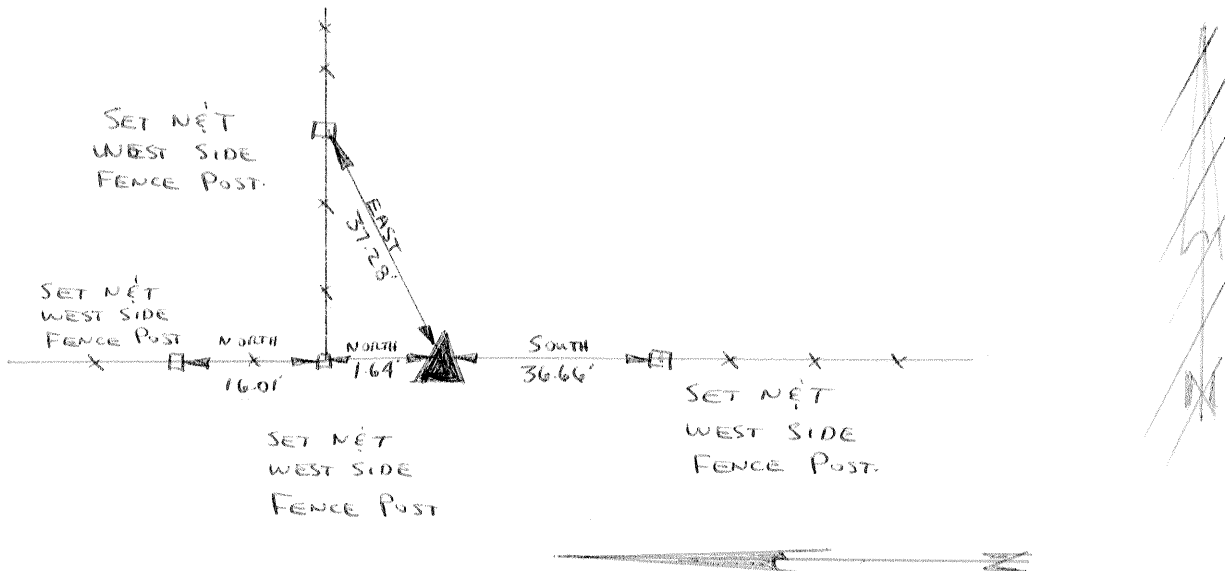 SET N&T
WEST SIDE
FENCE POST.
EAST
37.28'
SET N&T
WEST SIDE
FENCE POST
NORTH
16.01'
NORTH
1.64'
SOUTH
36.66'
SET N&T
WEST SIDE
FENCE POST.
SET N&T
WEST SIDE
FENCE POST
N
N